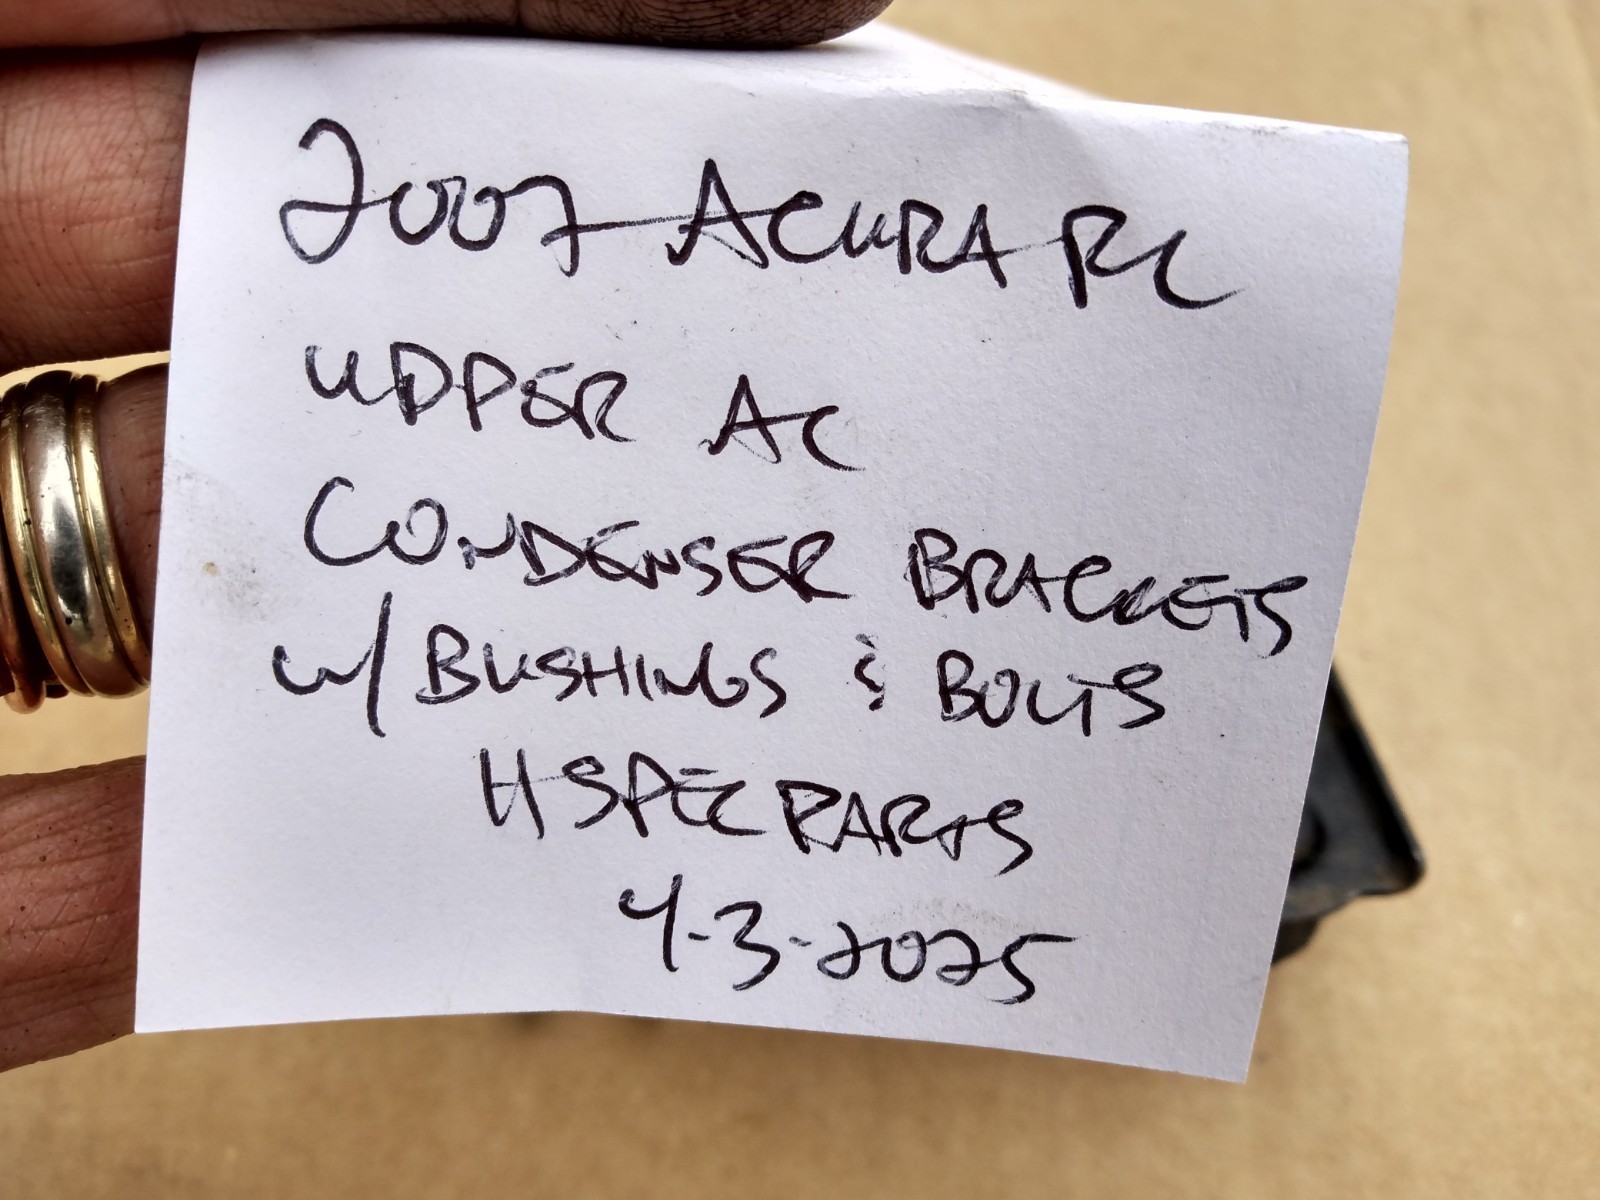 2007 ACURA RL
UPPER AC
CONDENSER BRACKETS
W/ BUSHINGS & BOLTS
HSPEC PARTS
4-3-2025